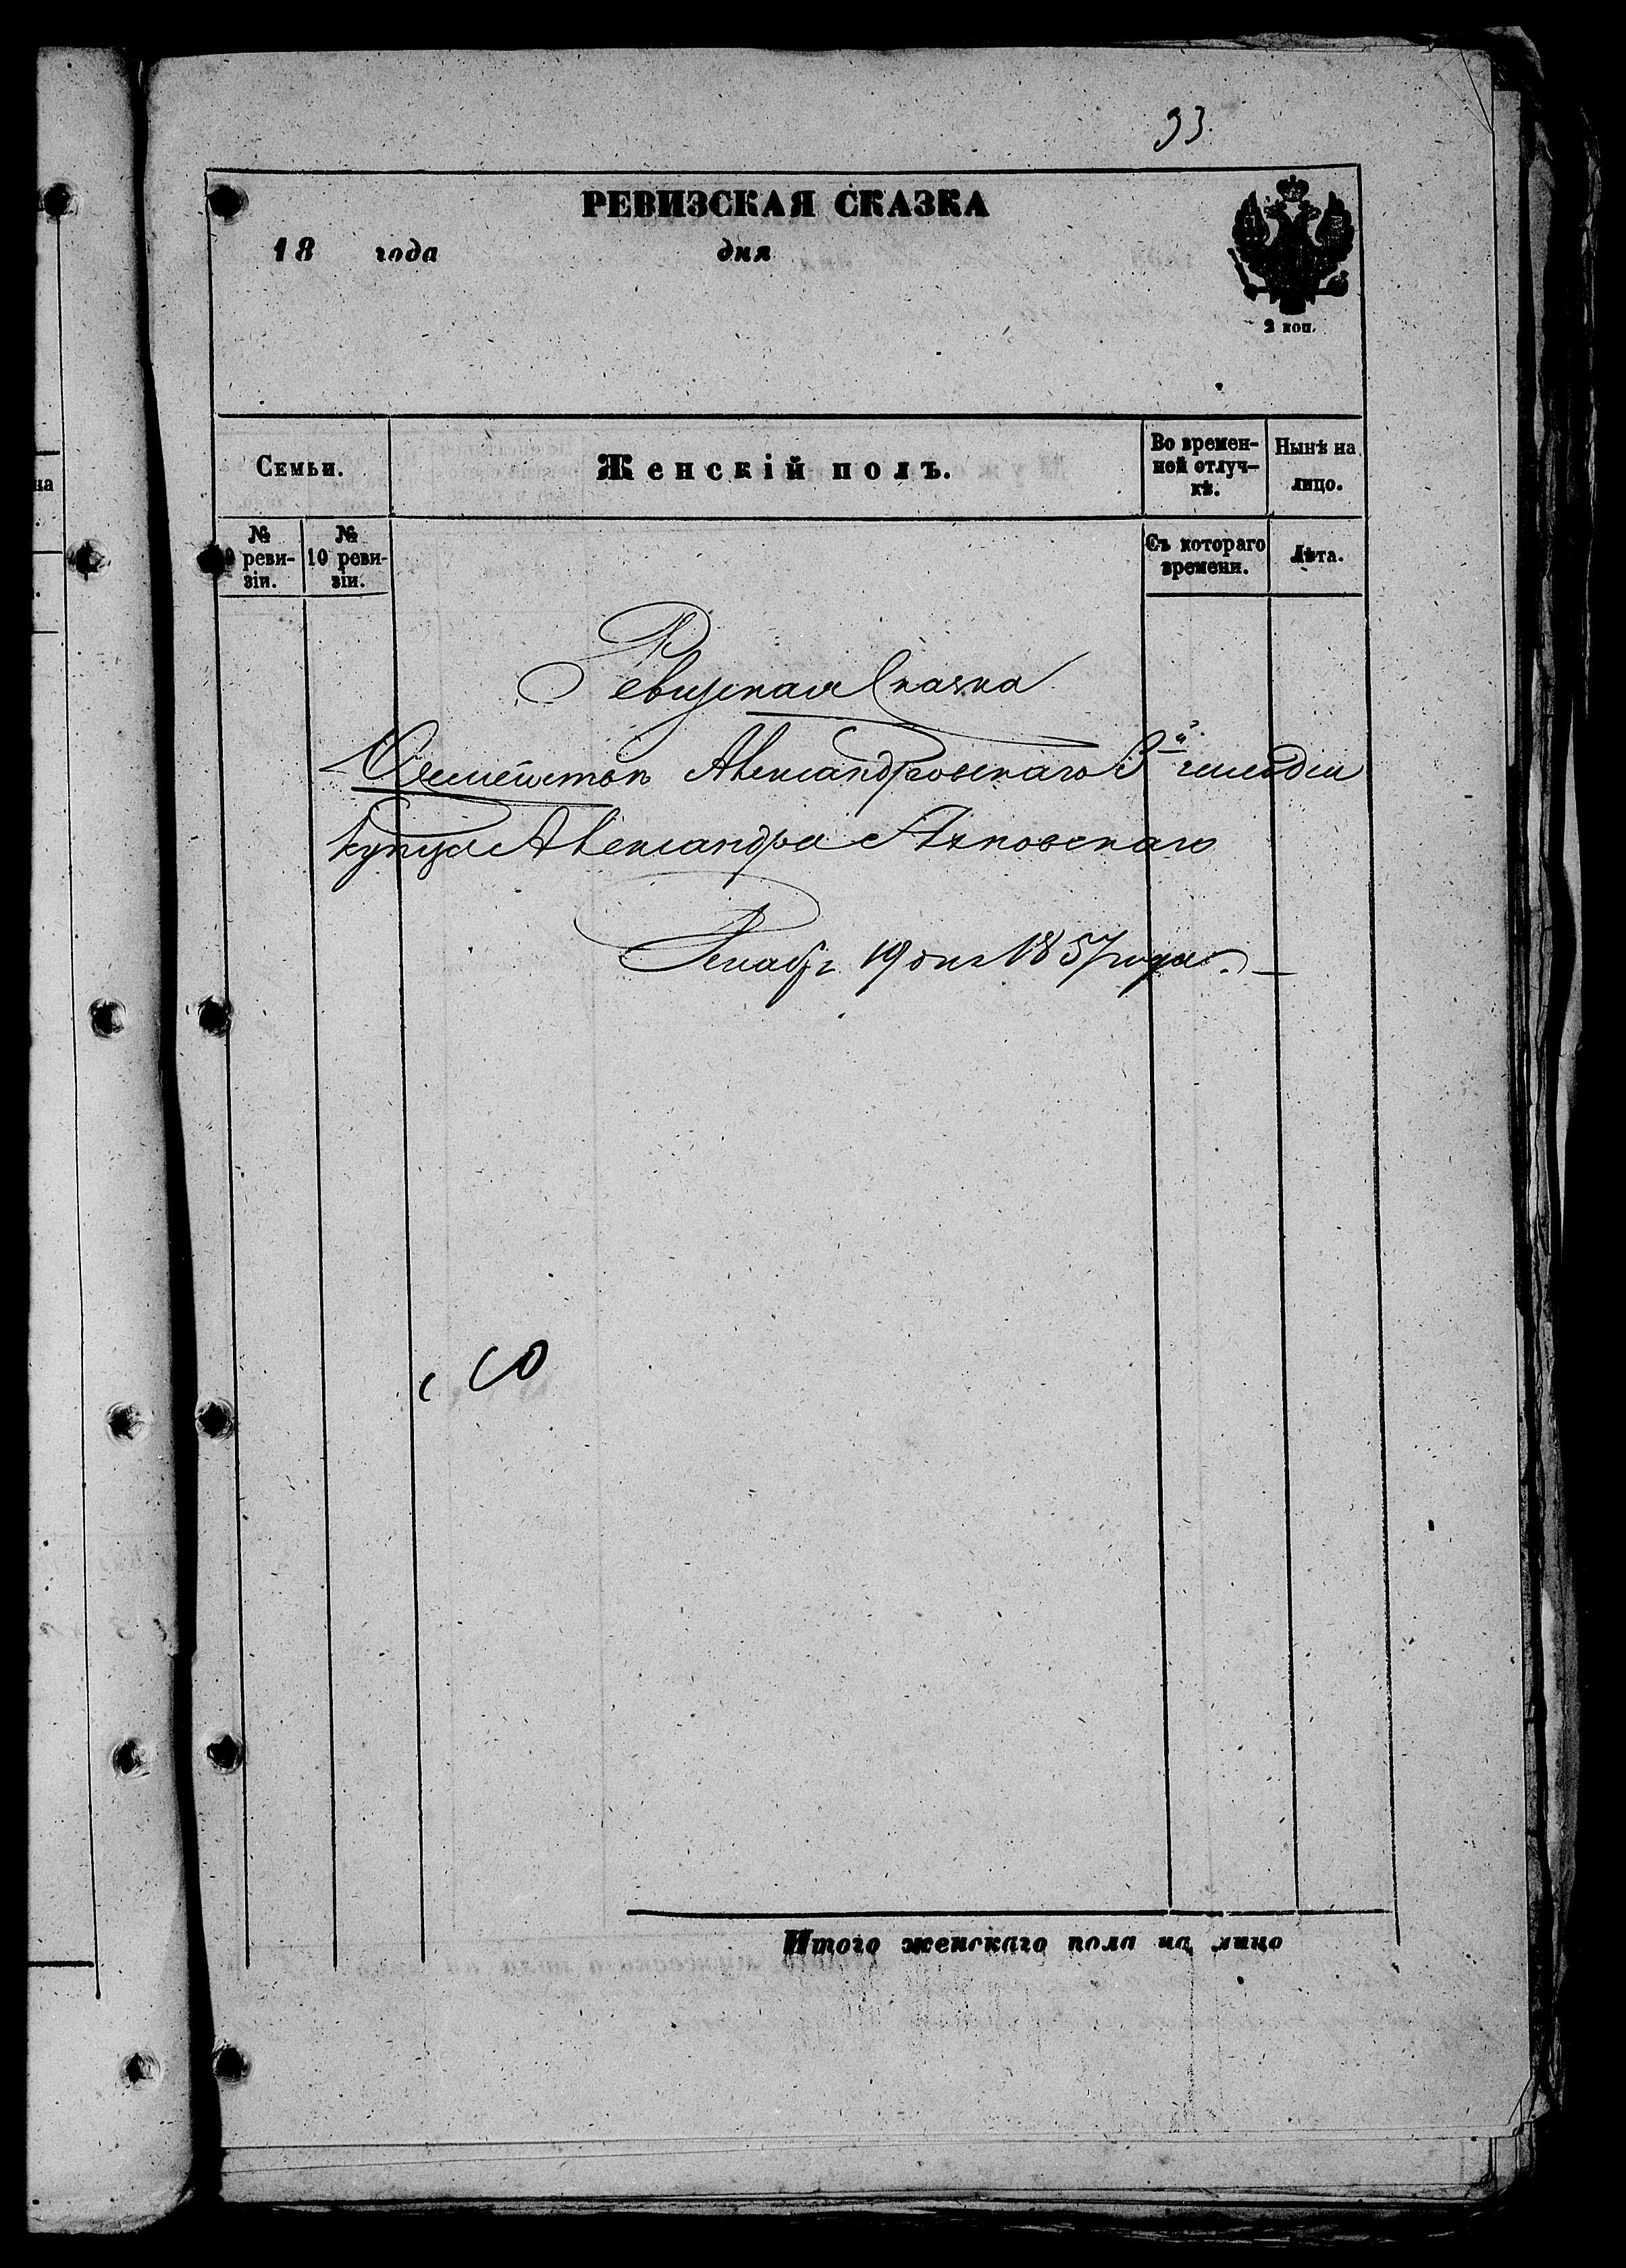 93.
РЕВИЗСКАЯ СКАЗКА
18 года дня
2 коп.
Семьи.
Женскій полъ.
Во времен-
ной отлуч-
кѣ.
Нынѣ на
лицо.
№
9 реви-
зіи.
№
10 реви-
зіи.
Съ котораго
времени.
Лѣта.
Ревизская Сказка
Семействъ Александровскаго 3й гильдіи
купца Александра
Декабря 19 дня 1857 года.
Итого женскаго пола на лицо